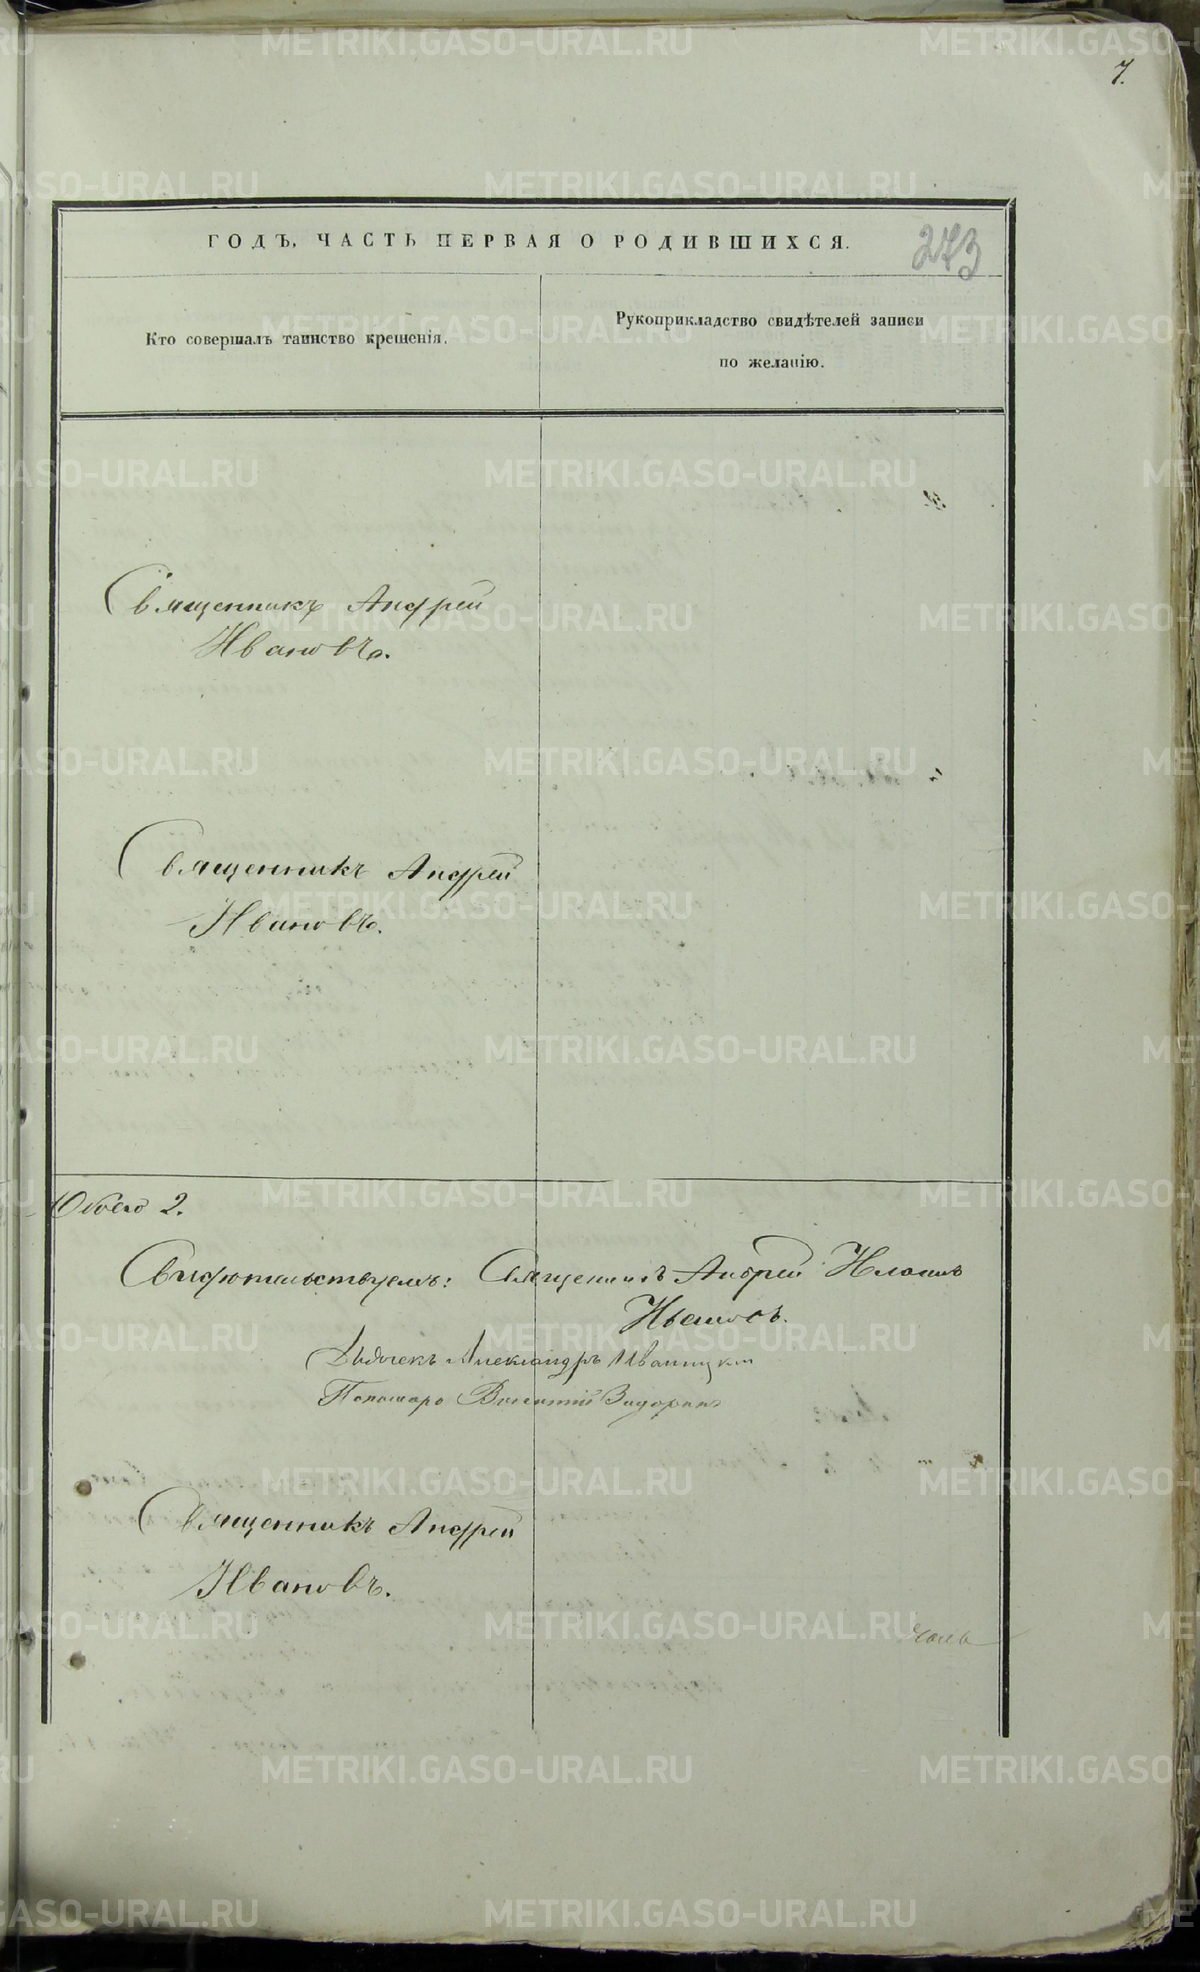 7.
ГОДЪ, ЧАСТЬ ПЕРВАЯ О РОДИВШИХСЯ.
273
Кто совершалъ таинство крещенія.
Рукоприкладство свидѣтелей записи
по желанію.
Священникъ Андрей
Ивановъ.
Священникъ Андрей
Ивановъ.
Обоего 2.
Свидѣтельствуемъ: Священникъ Андрей
Ивановъ.
Дьячекъ Александръ Иваницкій
Пономарь
Священникъ Андрей
Ивановъ.
METRIKI.GASO-URAL.RU